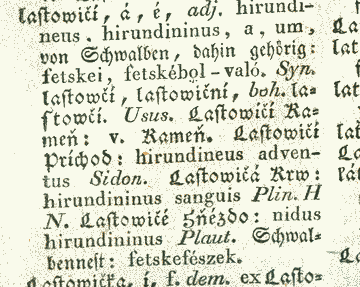 laſtowičí, á, é, adj. hirundi-
neus. hirundininus, a, um,
von Schwalben, dahin gehörig:
fetskei, fetskéböl-való. Syn.
laſtowčí, laſtowiční, boh. la-
ſtowčí. Usus. Laſtowičí Ka-
meň: v. Kameň. Laſtowičí
Príchod: hirundineus adven-
tus Sidon. Laſtowičá Krw:
hirundininus sanguis Plin. H
N. Laſtowičé Hňézdo: nidus
hirundininus Plaut. Schwal-
benneſt: fetskefészek.
Laſtowička, i, f. dem. ex Laſto-